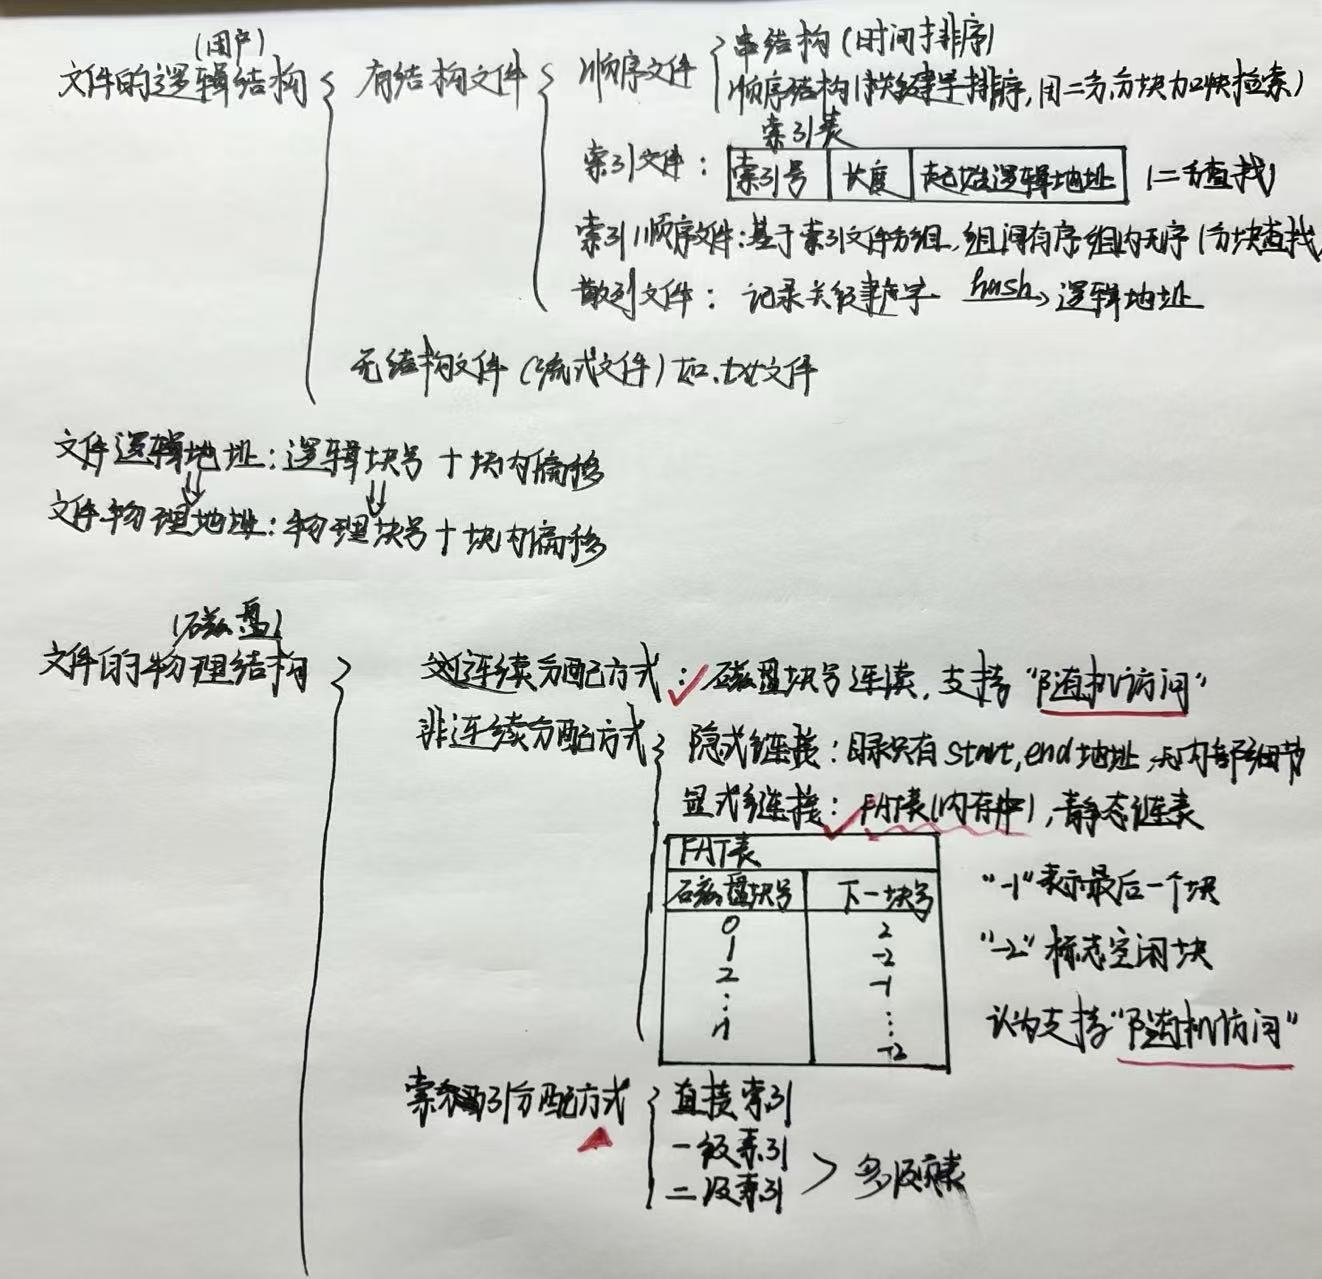 (用户)
文件的逻辑结构
有结构文件
顺序文件
串结构(时间排序)
顺序结构(按关键字排序,用二分,分块加快检索)
索引表
索引文件: 索引号 长度 起始逻辑地址 (二分查找)
索引顺序文件:基于索引文件分组,组间有序组内无序(分块查找
散列文件: 记录关键字 hash 逻辑地址
无结构文件(流式文件)如.txt文件
文件逻辑地址:逻辑块号+块内偏移
文件物理地址:物理块号+块内偏移
(磁盘)
文件的物理结构
连续分配方式:磁盘块号连续,支持“随机访问”
非连续分配方式
隐式链接:目录只有start,end地址,无内部细节
显式链接:FAT表(内存中),静态链表
FAT表
磁盘块号 下一块号
0 2
1 -2
2 -1
⋮ ⋮
n -2
“-1”表示最后一个块
“-2”标志空闲块
认为支持“随机访问”
索引分配方式
直接索引
一级索引
二级索引
> 多级索表